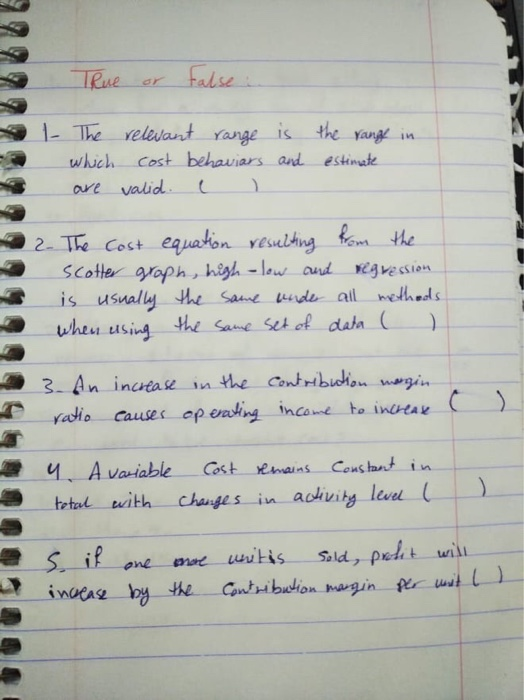 True or False :
1- The relevant range is the range in
which cost behaviars and estimate
are valid. ( )
2- The cost equation resulting from the
scatter graph, high-low and regression
is usually the same under all methods
when using the same set of data ( )
3- An increase in the contribution margin
ratio causes operating income to increase ( )
4. A variable cost remains constant in
total with changes in activity level ( )
5. if one more unit is sold, profit will
increase by the contribution margin per unit ( )